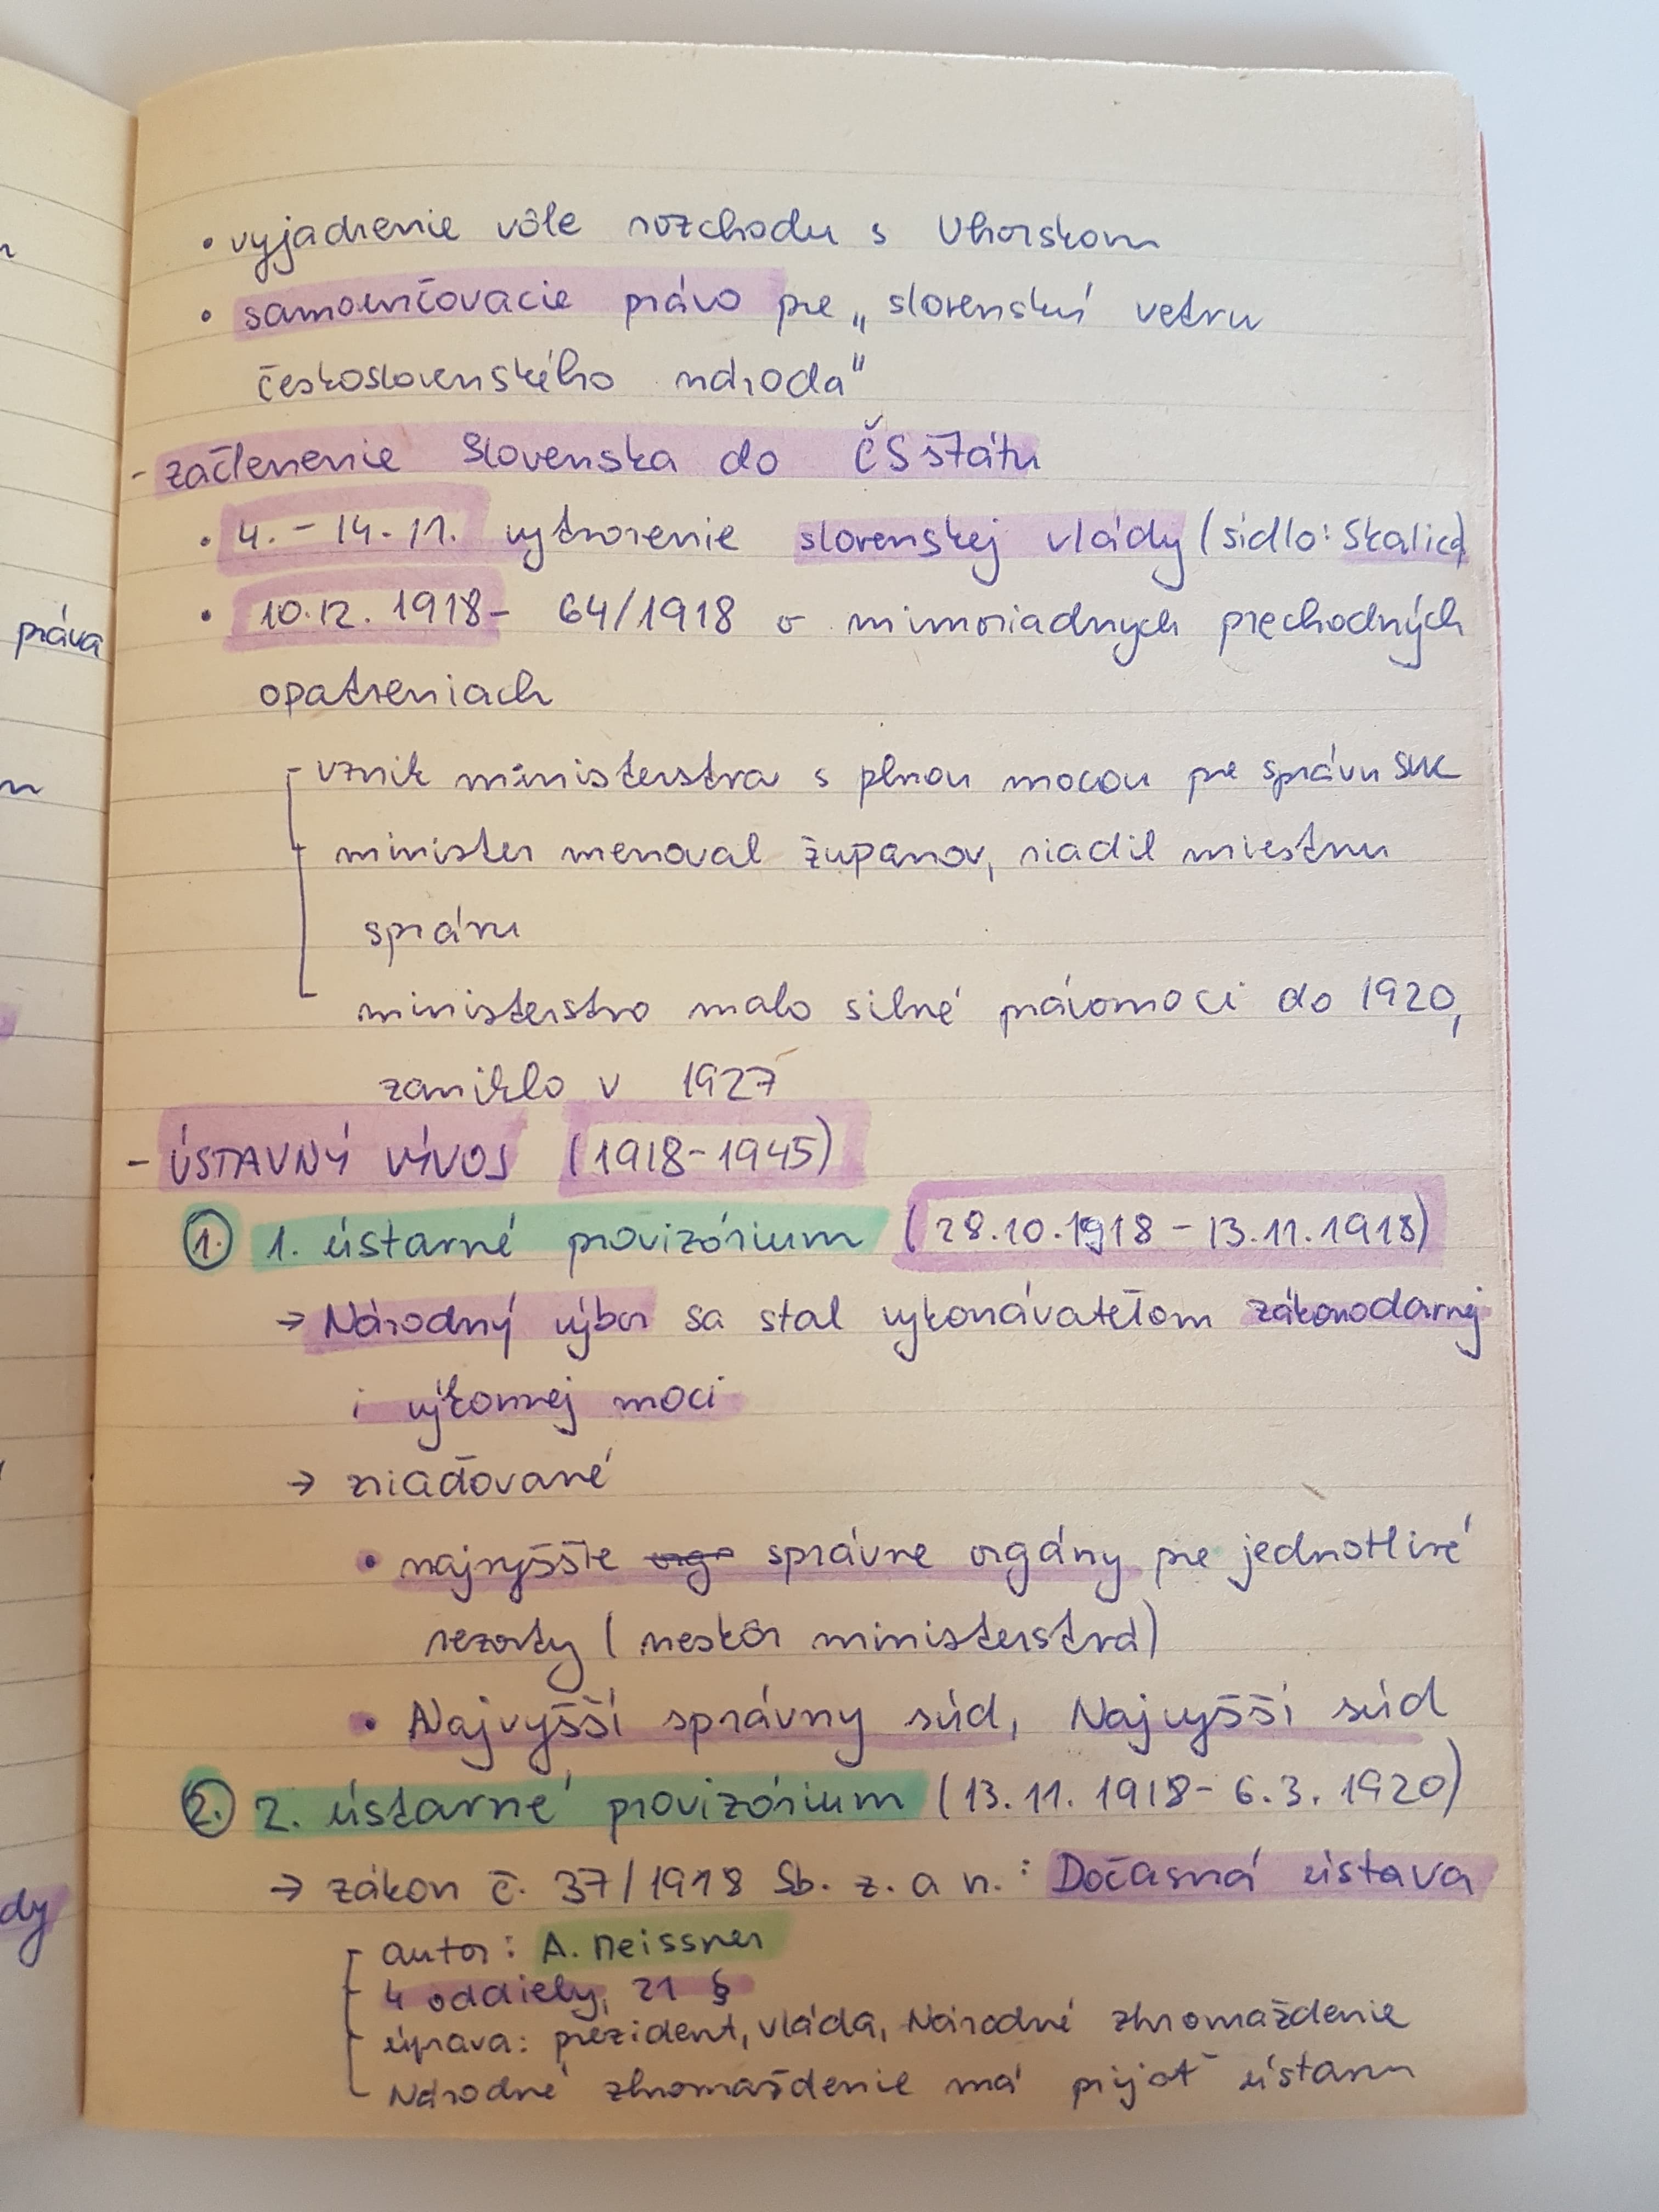 • vyjadrenie vôle rozchodu s Uhorskom
• samourčovacie právo pre „slovenskú vetvu
československého národa"
- začlenenie Slovenska do ČSštátu
• 4. - 14. 11. vytvorenie slovenskej vlády (sídlo: Skalica)
• 10.12. 1918 - 64/1918 o mimoriadnych prechodných
opatreniach
- vznik ministerstva s plnou mocou pre správu SVK
- minister menoval županov, riadil miestnu
správu
- ministerstvo malo silné právomoci do 1920,
zaniklo v 1927
- ÚSTAVNÝ VÝVOJ (1918-1945)
1. 1. ústavné provizórium (28.10.1918 - 13.11.1918)
→ Národný výbor sa stal vykonávateľom zákonodarnej
i výkonnej moci
→ zriaďované
• najvyššie správne orgány pre jednotlivé
rezorty (neskôr ministerstvá)
• Najvyšší správny súd, Najvyšší súd
2. 2. ústavné provizórium (13.11. 1918 - 6.3. 1920)
→ zákon č. 37/1918 Sb. z. a n.: Dočasná ústava
- autor: A. Meissner
- 4 oddiely, 21 §
- úprava: prezident, vláda, Národné zhromaždenie
- Národné zhromaždenie má prijať ústavu
práva
dy